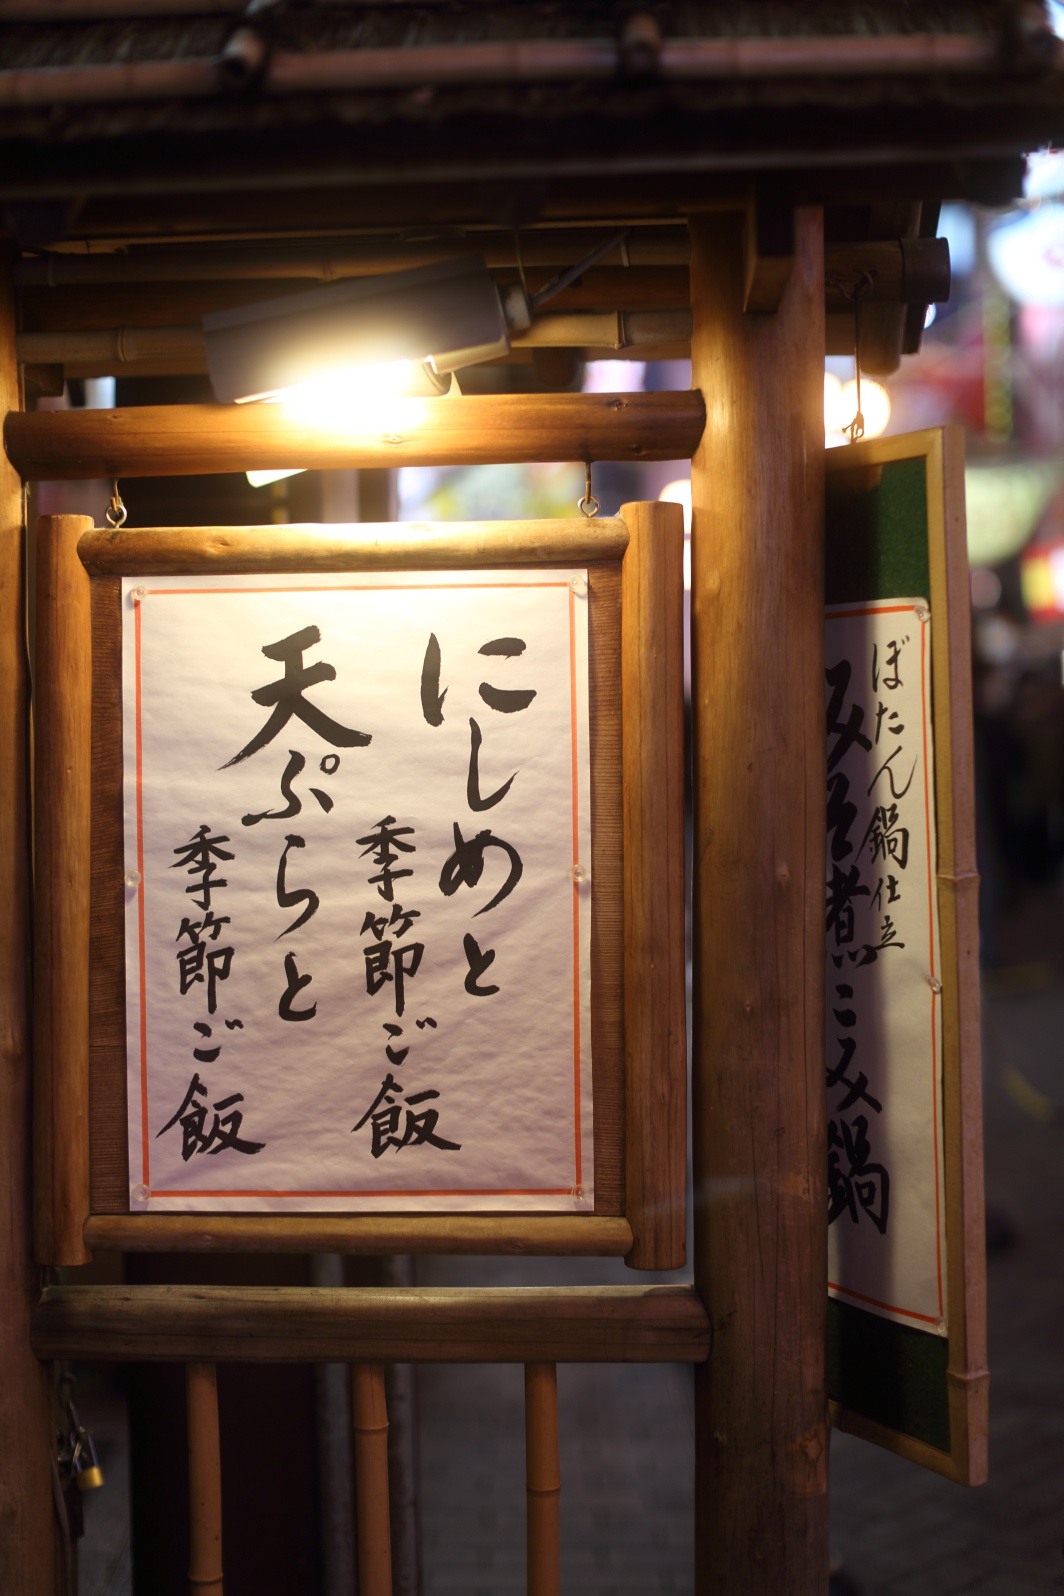 にしめと
季節ご飯
天ぷらと
季節ご飯
ぼたん鍋仕立
みそ煮こみ鍋